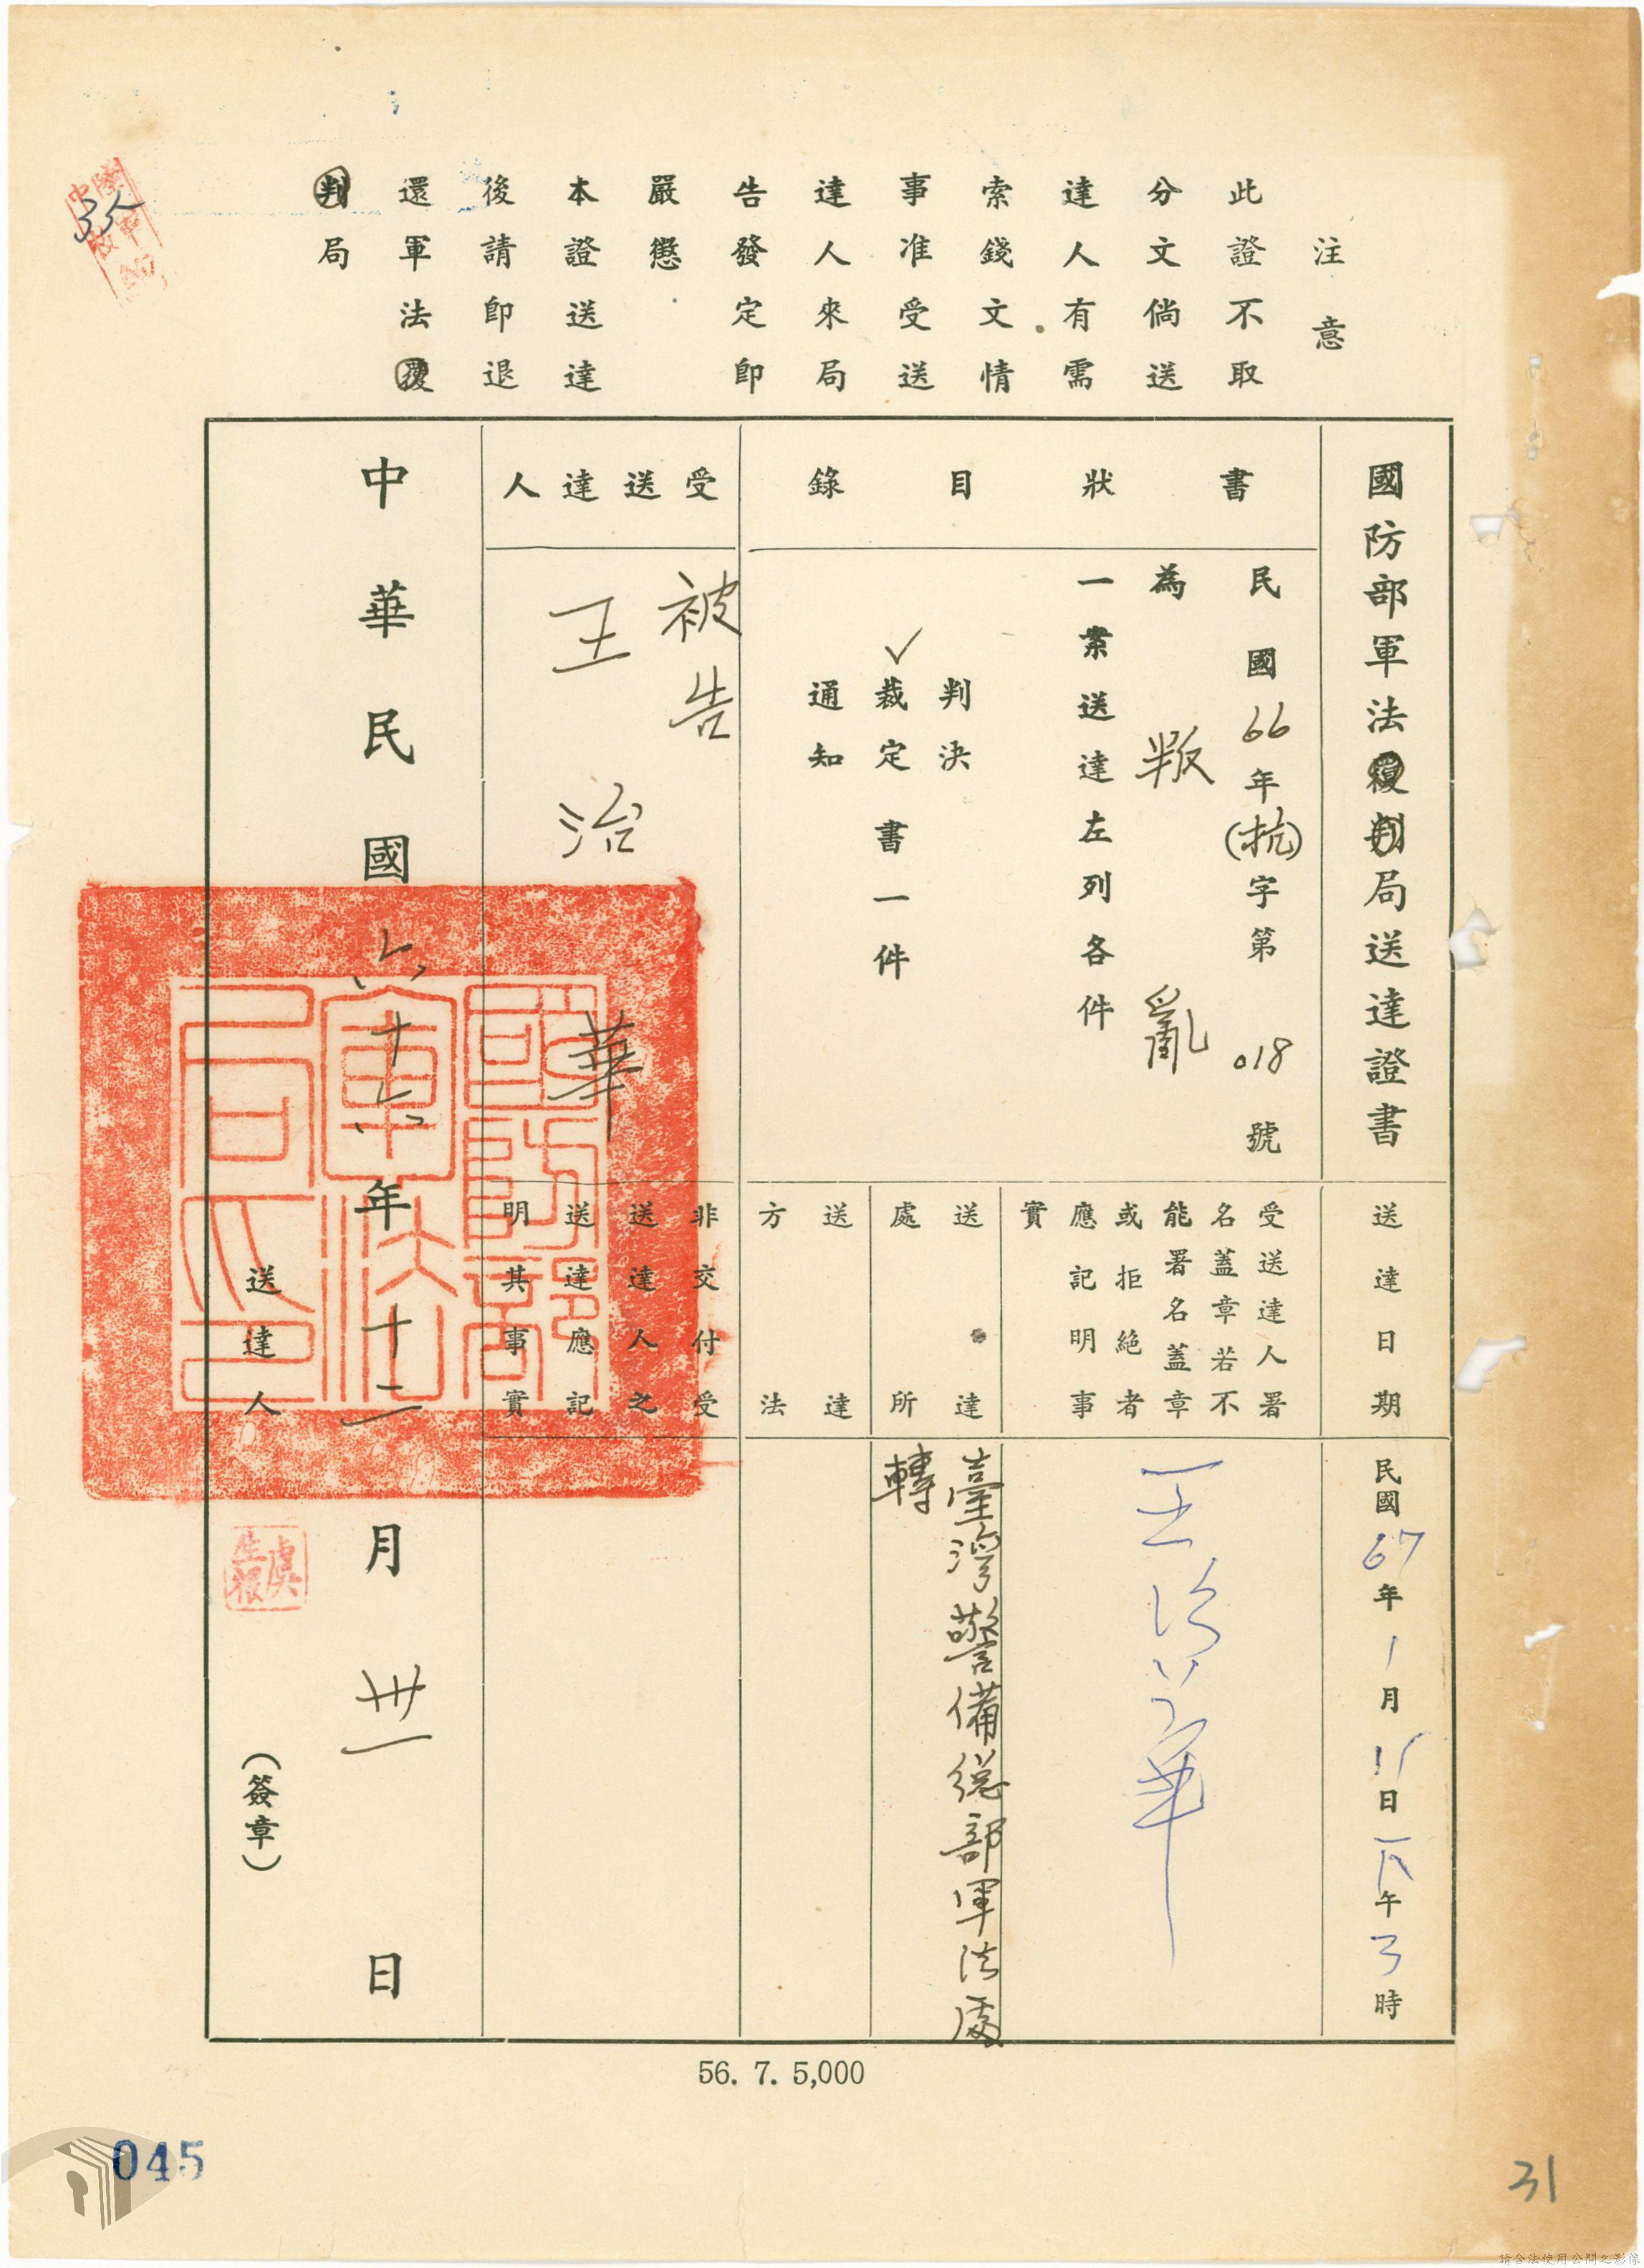 注意
此證不取
分文倘送
達人有需
索錢文情
事准受送
達人來局
告發定即
嚴懲
本證送達
後請即退
還軍法覆
判局
國防部軍法覆判局送達證書
送達日期
民國67年1月11日下午3時
書狀目錄
民國66年(抗)字第018號
為叛亂
一案送達左列各件
判決
✓裁定書一件
通知
受送達人署
名蓋章若不
能署名蓋章
或拒絕者
應記明事
實
王治華
送達
處所
臺灣警備總部軍法處
轉
送達
方法
受送達人
被告
王治華
非交付受
送達人之
送達應記
明其事實
中華民國六十六年十二月卅一日
送達人
虞
生根
(簽章)
國防部
軍法
局之印
56. 7. 5,000
045
31
請合法使用公開之影像